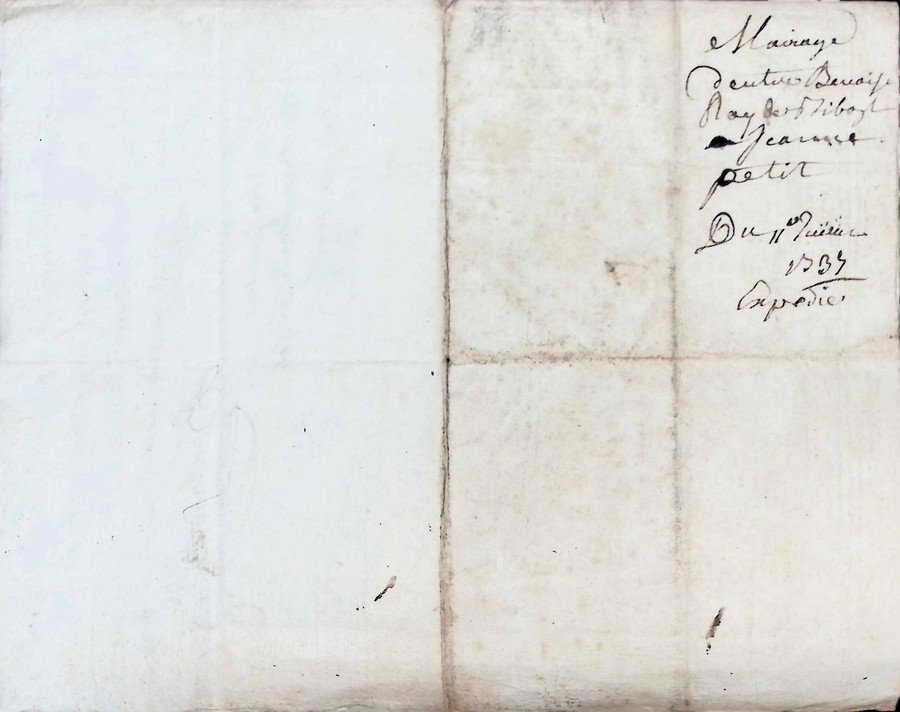 Mairage
dentre Benoist
Roy de Ribost
e Jeanne
petit
Du 11e
1737
Expedié